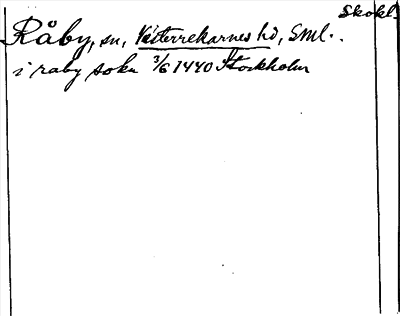 Skokl.
Råby, sn, Västerrekarnes hd, Sml.
i raby sokn 3/6 1440 Stockholm